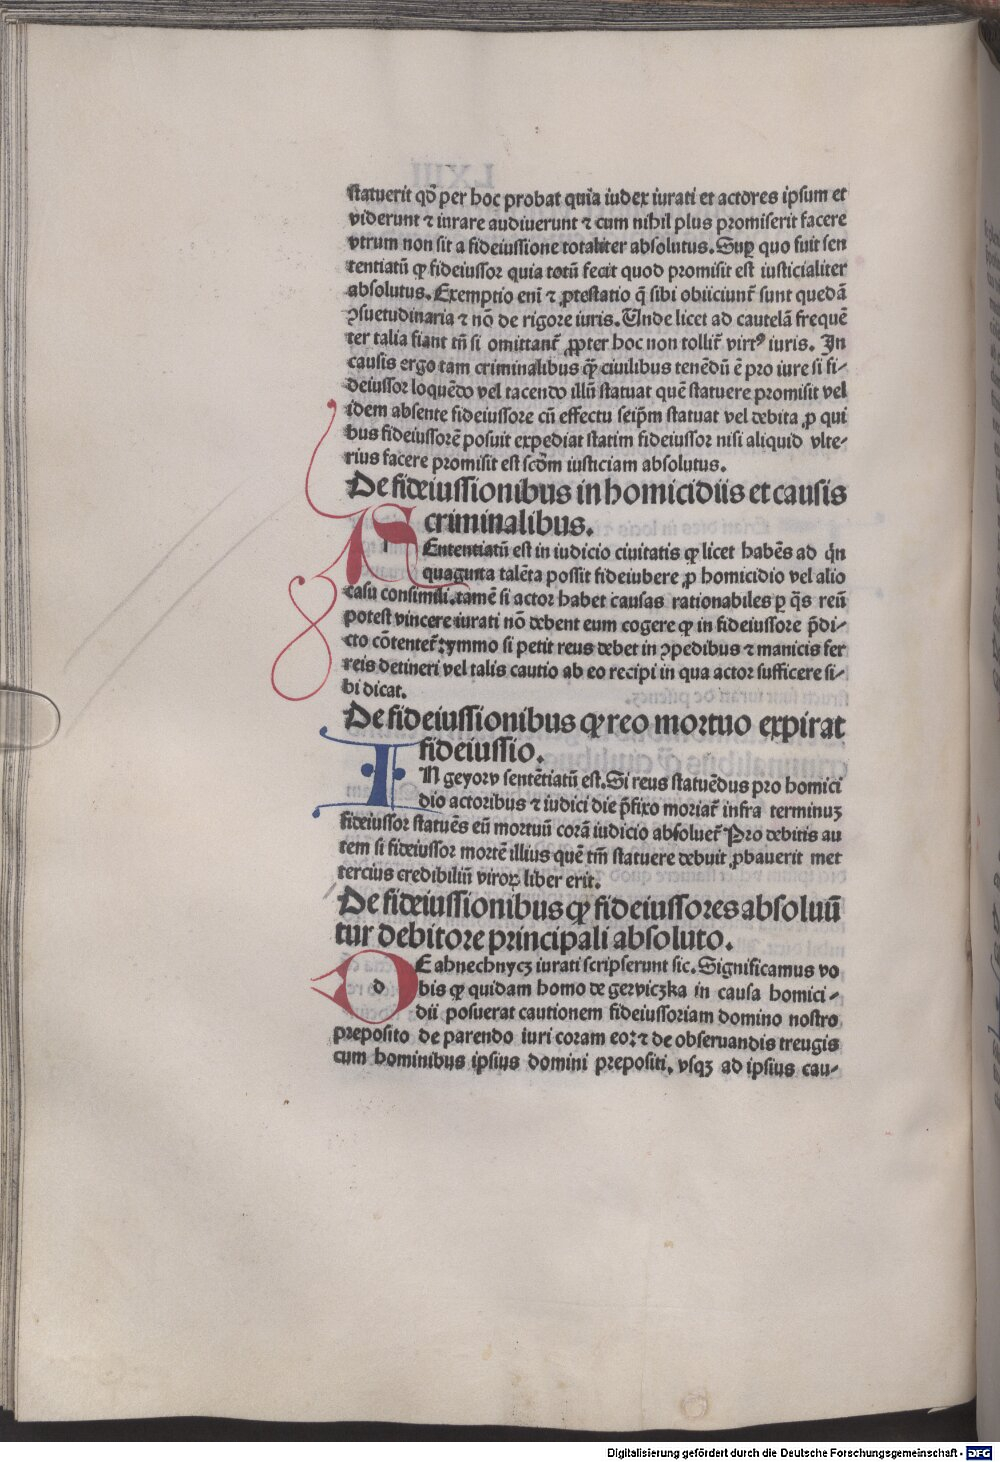 statuerit qď per hoc probat quia iudex iurati et actores ipsum et
viderunt ⁊ iurare audiuerunt ⁊ cum nihil plus promiserit facere
vtrum non sit a fideiussione totaliter absolutus. Suꝑ quo fuit sen
tentiatū ꝙ fideiussor quia totū fecit quod promisit est iusticialiter
absolutus. Exemptio eni ⁊ ꝓtestatio q̄ sibi obiiciunt᷑ sunt quedā
ꝯsuetudinaria ⁊ nō de rigore iuris. Unde licet ad cautelā frequē
ter talia fiant tn̄ si omittant᷑ ꝓpter hoc non tollit᷑ virtꝰ iuris. In
causis ergo tam criminalibus qꝫ ciuilibus tenēdū ē pro iure si fi-
deiussor loquēdo vel tacendo illū statuat quē statuere promisit vel
idem absente fideiussore cū effectu seip̄m statuat vel debita ꝓ qui
bus fideiussorē posuit expediat statim fideiussor nisi aliquid vlte-
rius facere promisit est scd̄m iusticiam absolutus.
De fideiussionibus in homicidiis et causis
criminalibus.
SEntentiatū est in iudicio ciuitatis ꝙ licet habēs ad q̄n
quaginta talēta possit fideiubere ꝓ homicidio vel alio
casu consimili. tamē si actor habet causas rationabiles ꝑ q̄s reū
potest vincere iurati nō debent eum cogere ꝙ in fideiussore p̄di-
cto cōtentet᷑: ymmo si petit reus debet in ꝯpedibus ⁊ manicis fer
reis detineri vel talis cautio ab eo recipi in qua actor sufficere si-
bi dicat.
De fideiussionibus ꝙ reo mortuo expirat
fideiussio.
IN geyorv sentētiatū est. Si reus statuēdus pro homici
dio actoribus ⁊ iudici die p̄fixo moriat᷑ infra terminuꝫ
fideiussor statuēs eū mortuū corā iudicio absoluet᷑ Pro debitis au
tem si fideiussor mortē illius quē tm̄ statuere debuit ꝓbauerit met
tercius credibiliū viroꝝ liber erit.
De fideiussionibus ꝙ fideiussores absoluū
tur debitore principali absoluto.
DE ahnechnycz iurati scripserunt sic. Significamus vo
bis ꝙ quidam homo de gerviczka in causa homici-
dii posuerat cautionem fideiussoriam domino nostro
preposito de parendo iuri coram eo: ⁊ de obseruandis treugis
cum hominibus ipsius domini prepositi. vsqꝫ ad ipsius cau-
Digitalisierung gefördert durch die Deutsche Forschungsgemeinschaft - DFG